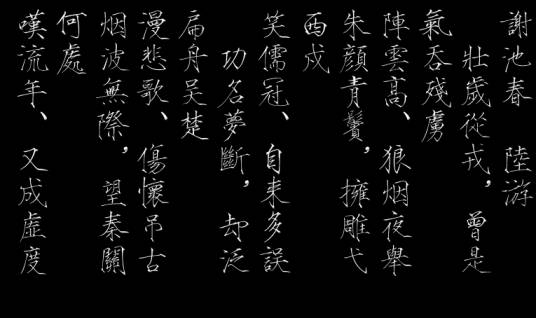 謝池春　陸游
壯歲從戎，曾是
氣吞殘虜
陣雲高、狼烟夜舉
朱顏青鬢，擁雕戈
西戍
笑儒冠、自来多誤
功名夢斷，却泛
扁舟吴楚
漫悲歌、傷懷吊古
烟波無際，望秦關
何處
嘆流年、又成虛度